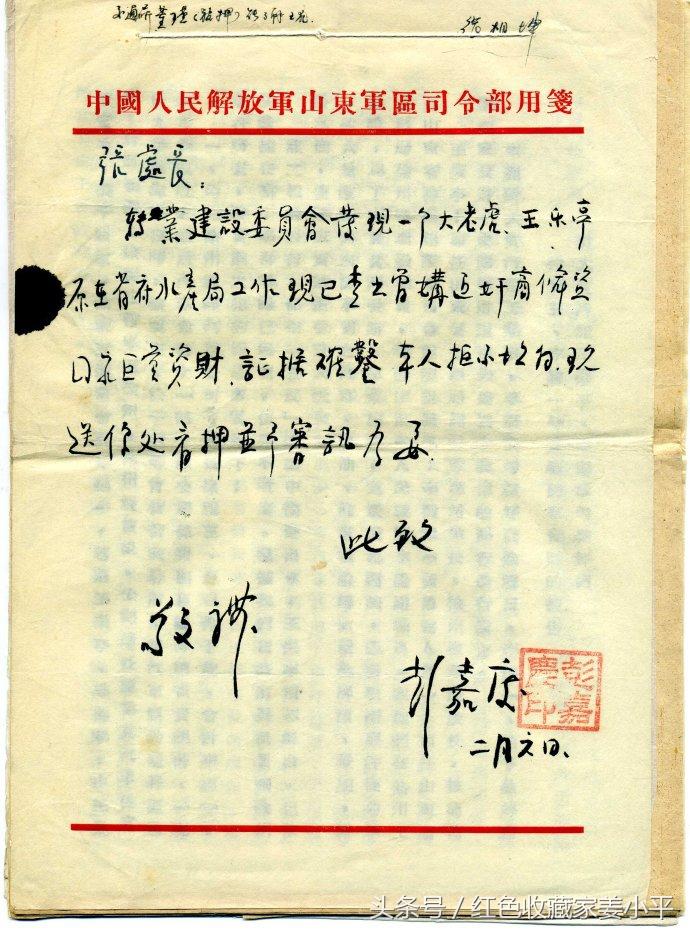 徐相坤
中國人民解放軍山東軍區司令部用箋
張處長：
轉業建設委員會發現一个大老虎、王乐亭
原在省府水產局工作现已查出曾媾通奸商偷盜
國家巨萬資財，証据確鑿本人拒不坦白，现
送你处看押並予審訊为妥
此致
敬禮
彭嘉庆
彭嘉慶印
二月六日、
头条号 / 红色收藏家姜小平